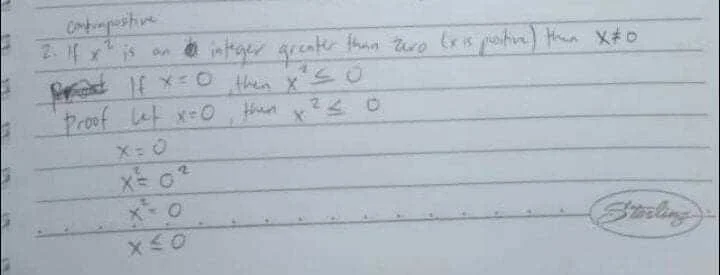 Contrapositive
2. If x² is an integer greater than zero (x is positive) then x≠0
Proof If x=0, then x²≤0
Proof Let x=0, then x²≤0
x=0
x²=0²
x²=0
x≤0
Sterling